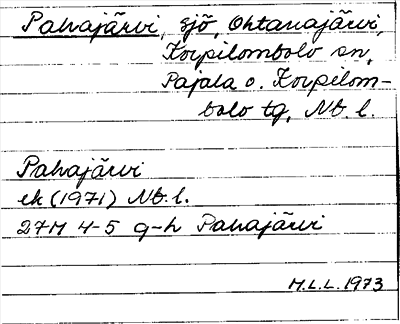 Pahajärvi, sjö, Ohtanajärvi,
Korpilombolo sn,
Pajala o. Korpilom-
bolo tg, Nb. l.
Pahajärvi
ek (1971) Nb. l.
27M 4-5 g-h Pahajärvi
M.L.L. 1973